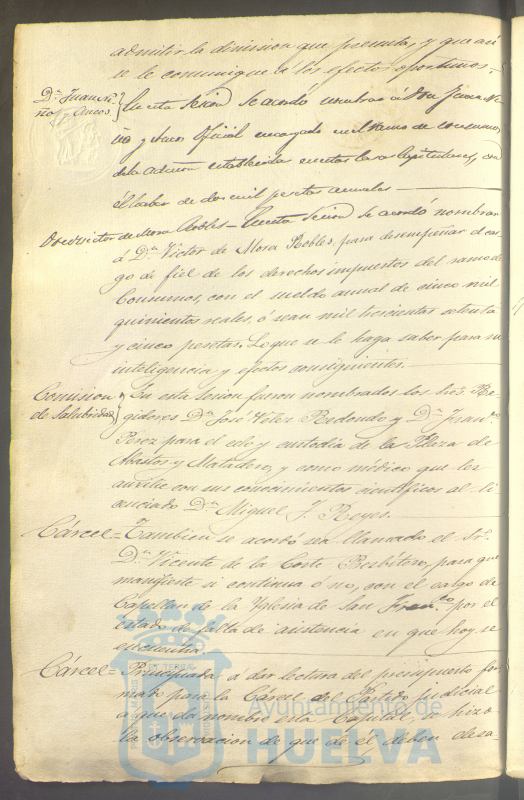 admitir la dimision que presenta, y que asi
se le comunique á los efectos oportunos.
Dn. Juan Ni-
ño y Ancos.
En esta sesion se acordó nombrar á Don Juan Ni-
ño y Oficial encargado en el Ramo de consumos,
de la admon establecida en estas Casas Capitulares, con
el haber de dos mil pesetas anuales
Don Victor de Mora Robles = En esta sesion se acordó nombrar
á Dn. Victor de Mora Robles, para desempeñar el car-
go de fiel de los derechos impuestos del ramo de
Consumos, con el sueldo anual de cinco mil
quinientos reales, ó sean mil trescientas setenta
y cinco pesetas. Lo que se le haga saber para su
inteligencia y efectos consiguientes.
Comision
de Salubridad
En esta sesion fueron nombrados los Sres. Re-
gidores Dn. José Velez Redondo y Dn. Juan
Perez para el celo y custodia de la Plaza de
Abastos y Matadero, y como médico que les
auxilie con sus conocimientos cientificos al li-
cenciado Dn. Miguel J. Reyes.
Cárcel = Tambien se acordó sea llamado el Sr.
Dn. Vicente de la Corte para que
manifieste si continua ó no, con el cargo de
Capellan de la Yglesia de San Franco. por el
estado de falta de asistencia en que hoy se
encuentra.
Cárcel = Principiada á dar lectura del presupuesto for-
mado para la Cárcel del Partido judicial
a que da nombre esta Capital, se hizo
la observacion de que de él deben desa-
Ayuntamiento de
HUELVA